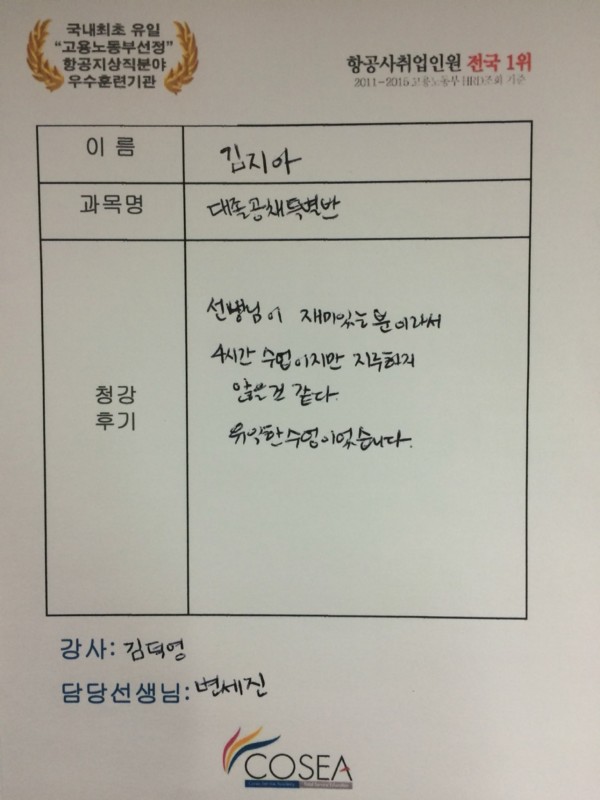 국내최초 유일
"고용노동부선정"
항공지상직분야
우수훈련기관
항공사취업인원 전국 1위
2011-2015 고용노동부 HRD조회 기준
이 름
김지아
과목명
대졸공채특별반
청강
후기
선생님이 재미있는분이라서
4시간 수업이지만 지루하지
않을 것 같다.
유익한수업이었습니다.
강사: 김덕영
담당선생님: 변세진
COSEA